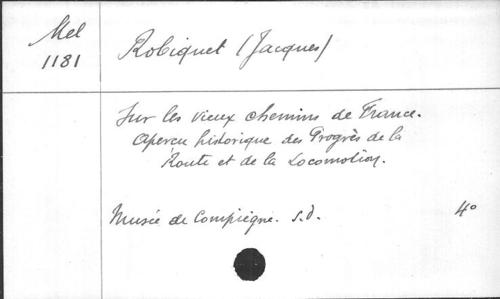 Mel
1181
Robiquet (Jacques)
Sur les vieux chemins de France.
Aperçu historique des Progrès de la
Route et de la Locomotion.
Musée de Compiègne. s.d.
4°